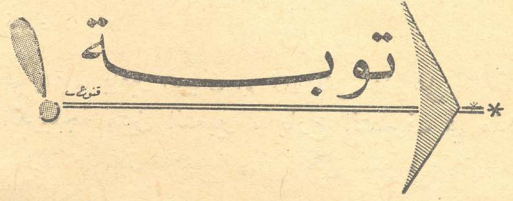 توبة !